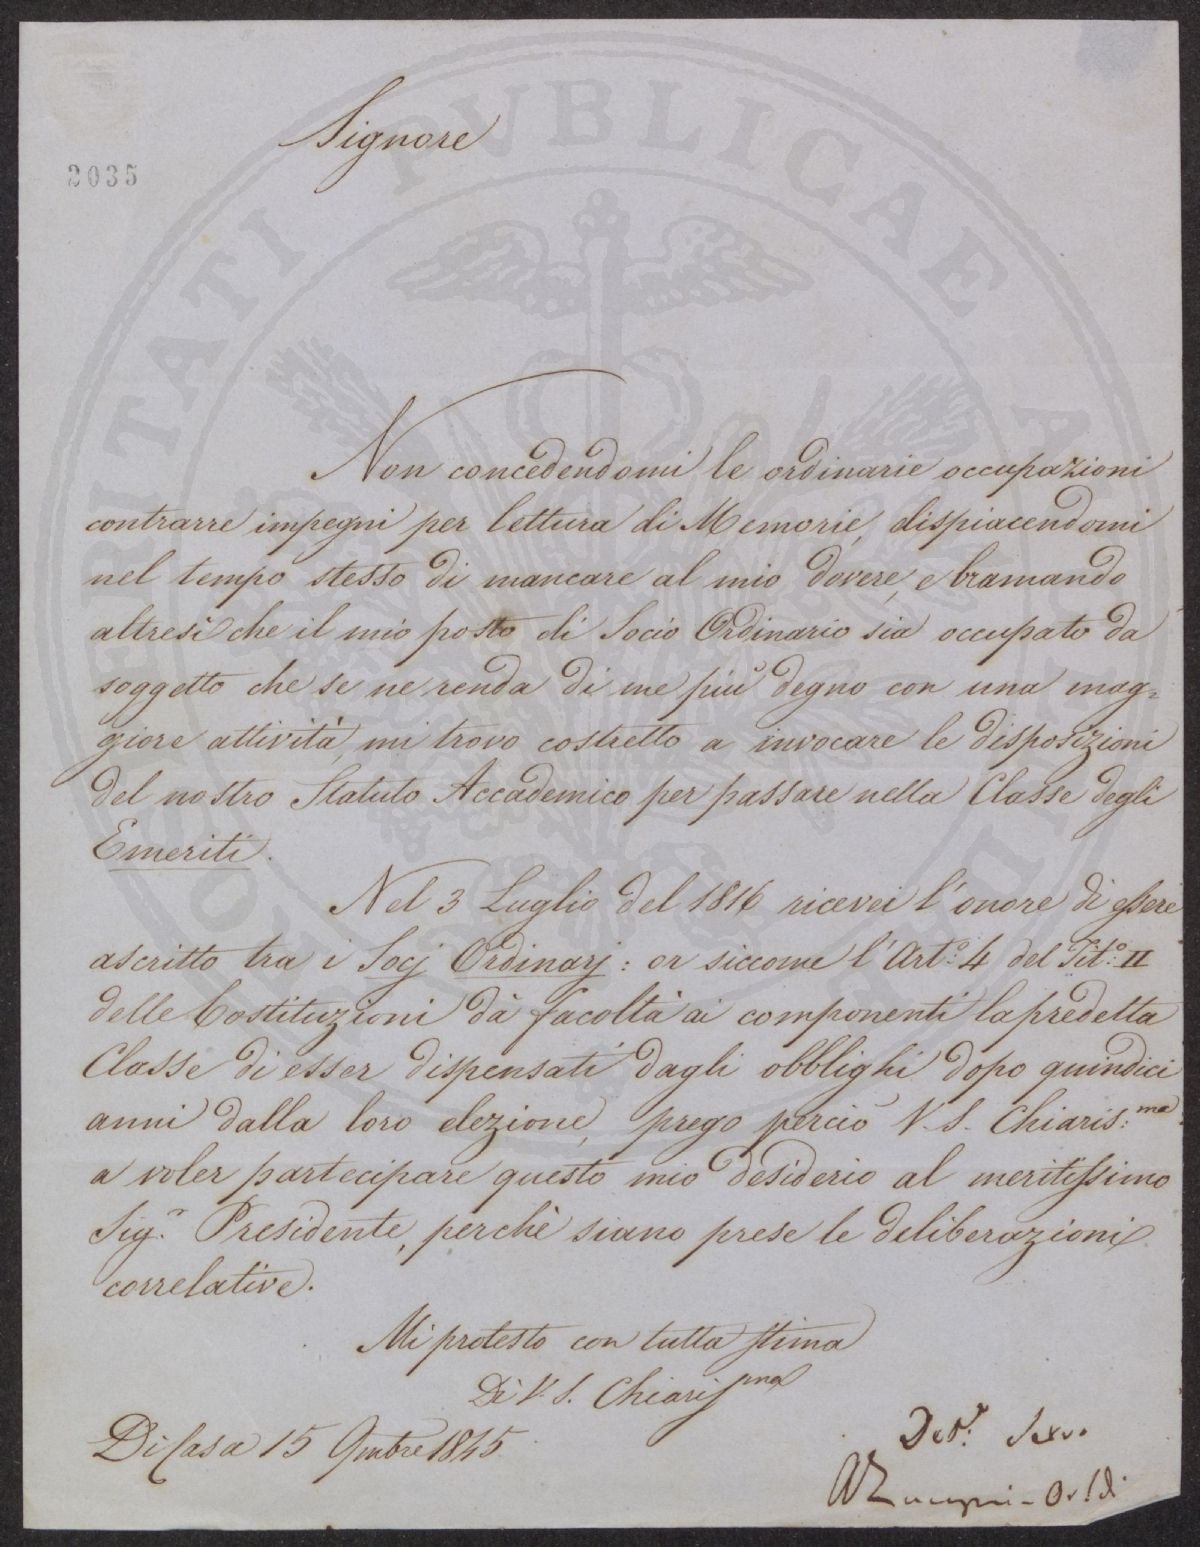 Signore
2035
Non concedendomi le ordinarie occupazioni
contrarre impegni per lettura di Memorie, dispiacendomi
nel tempo stesso di mancare al mio dovere, e bramando
altresì che il mio posto di Socio Ordinario sia occupato da
soggetto che se ne renda di me più degno con una mag=
giore attività, mi trovo costretto a invocare le disposizioni
del nostro Statuto Accademico per passare nella Classe degli
Emeriti.
Nel 3 Luglio del 1816 ricevei l'onore di essere
ascritto tra i Socj Ordinarj: or siccome l'Art.o 4 del Tit.o II
delle Costituzioni dà facoltà ai componenti la predetta
Classe di esser dispensati dagli obblighi dopo quindici
anni dalla loro elezione, prego perciò V. S. Chiaris:ma
a voler partecipare questo mio desiderio al meritissimo
Sig.r Presidente, perchè siano prese le deliberazioni
correlative.
Mi protesto con tutta stima
Di V. S. Chiarissma
Di Casa 15 9mbre 1845.
Dev.mo Servo
AZuccagni-Orldi